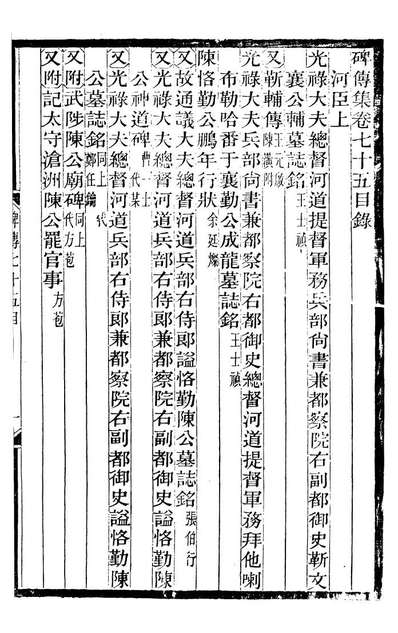 碑傳集卷七十五目錄
河臣上
光祿大夫總督河道提督軍務兵部尚書兼都察院右副都御史靳文
襄公輔墓誌銘 王士禎
又靳輔傳 王元啟 陳潢附
光祿大夫兵部尚書兼都察院右都御史總督河道提督軍務拜他喇
布勒哈番于襄勤公成龍墓誌銘 王士禎
陳恪勤公鵬年行狀 余廷燦
又故通議大夫總督河道兵部右侍郎謚恪勤陳公墓誌銘 張伯行
又光祿大夫總督河道兵部右侍郎兼都察院右副都御史謚恪勤陳
公神道碑 曹一士 代某
又光祿大夫總督河道兵部右侍郎兼都察院右副都御史謚恪勤陳
公墓誌銘 同上 鄭任鑰
又附武陟陳公廟碑 同上 代方苞
又附記太守滄洲陳公罷官事 方苞
碑傳七十五目